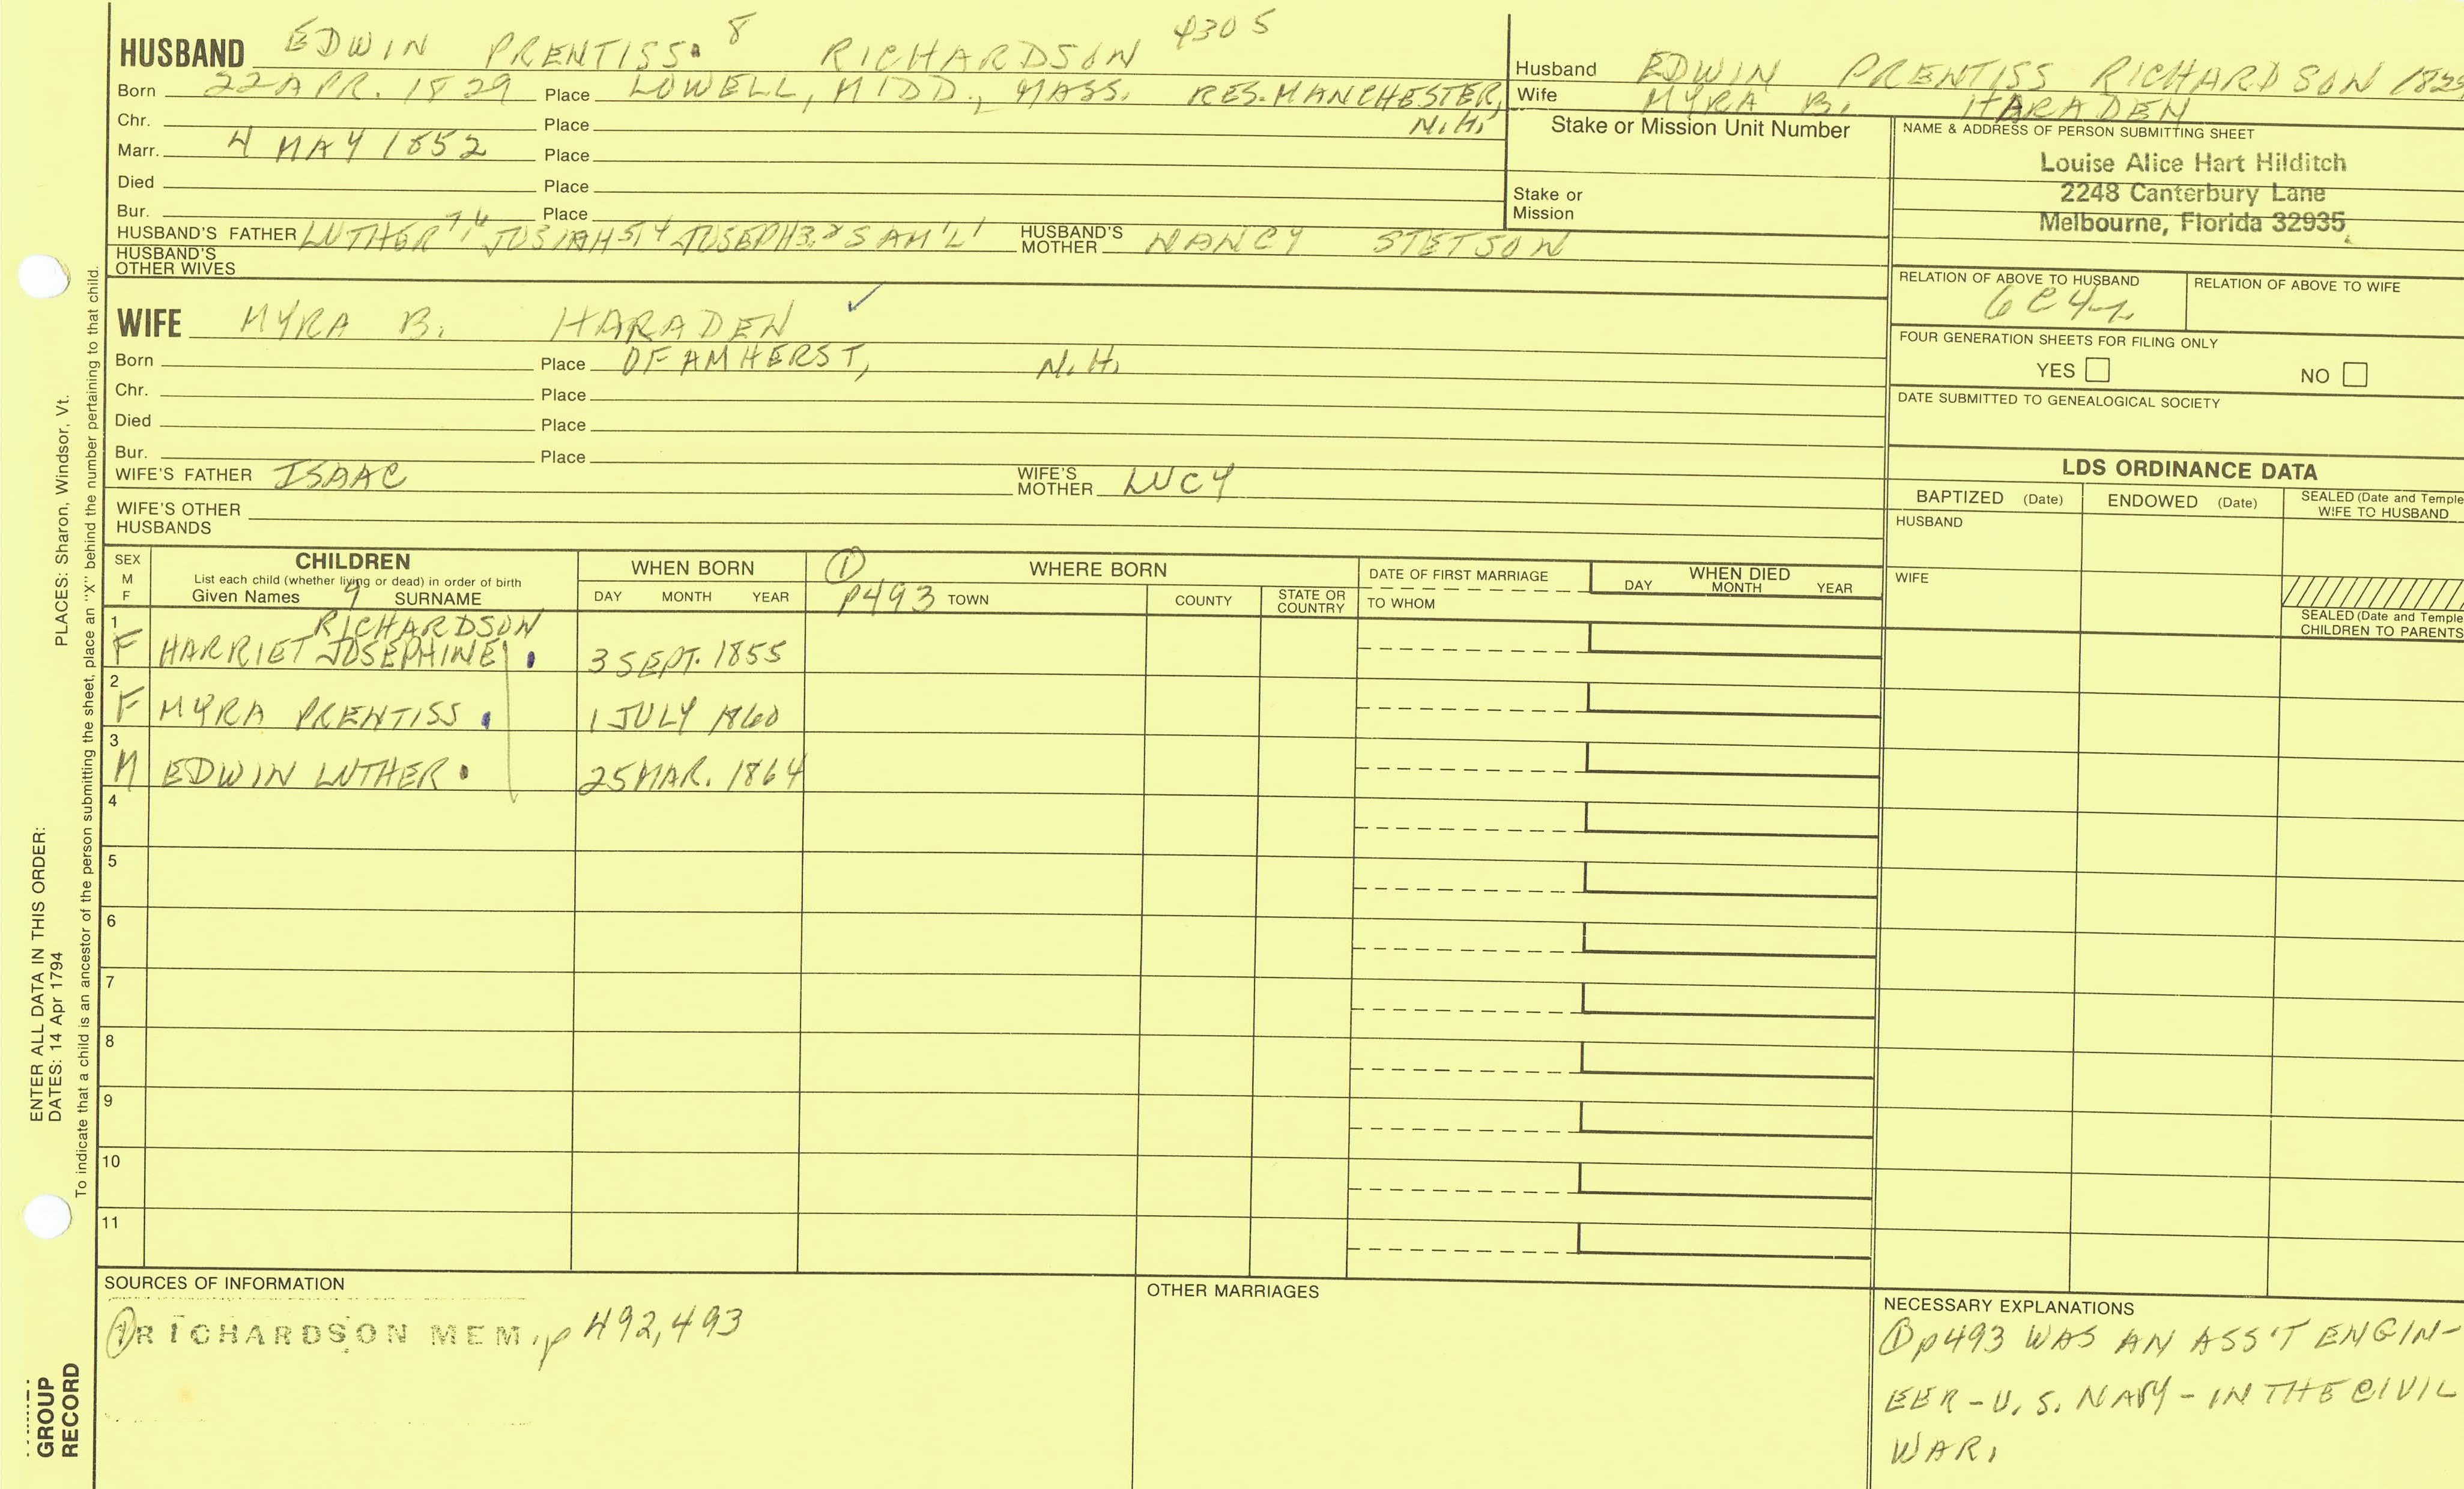 HUSBAND EDWIN PRENTISS. 8 RICHARDSON 4305
Born 22 APR. 1829 Place LOWELL, MIDD., MASS. RES. MANCHESTER,
Chr. Place N.H.
Marr. 4 MAY 1852 Place
Died Place
Bur. Place
HUSBAND'S FATHER LUTHER 7,6 JOSIAH 5,4 JOSEPH 3,2 SAM'L 1 HUSBAND'S MOTHER NANCY STETSON
HUSBAND'S OTHER WIVES
Husband EDWIN PRENTISS RICHARDSON
Wife MYRA B. HARADEN
Stake or Mission Unit Number
Stake or Mission
NAME & ADDRESS OF PERSON SUBMITTING SHEET
Louise Alice Hart Hilditch
2248 Canterbury Lane
Melbourne, Florida 32935
RELATION OF ABOVE TO HUSBAND RELATION OF ABOVE TO WIFE
FOUR GENERATION SHEETS FOR FILING ONLY
YES NO
DATE SUBMITTED TO GENEALOGICAL SOCIETY
WIFE MYRA B. HARADEN ✓
Born Place OF AMHERST, N.H.
Chr. Place
Died Place
Bur. Place
WIFE'S FATHER ISAAC WIFE'S MOTHER LUCY
WIFE'S OTHER HUSBANDS
LDS ORDINANCE DATA
BAPTIZED (Date) ENDOWED (Date) SEALED (Date and Temple
WIFE TO HUSBAND
HUSBAND
WIFE
SEALED (Date and Temple
CHILDREN TO PARENTS
SEX M F
CHILDREN
List each child (whether living or dead) in order of birth
Given Names 9 SURNAME
WHEN BORN
DAY MONTH YEAR
① p493
WHERE BORN
TOWN COUNTY STATE OR COUNTRY
DATE OF FIRST MARRIAGE
TO WHOM
WHEN DIED
DAY MONTH YEAR
RICHARDSON
1 F HARRIET JOSEPHINE . 3 SEPT. 1855
2 F MYRA PRENTISS . 1 JULY 1860
3 M EDWIN LUTHER . 25 MAR. 1864
4
5
6
7
8
9
10
11
SOURCES OF INFORMATION
① RICHARDSON MEM, p 492,493
OTHER MARRIAGES
NECESSARY EXPLANATIONS
① p493 WAS AN ASS'T ENGIN-
EER - U. S. NAVY - IN THE CIVIL
WAR.
ENTER ALL DATA IN THIS ORDER:
DATES: 14 Apr 1794 PLACES: Sharon, Windsor, Vt.
To indicate that a child is an ancestor of the person submitting the sheet, place an "X" behind the number pertaining to that child.
GROUP
RECORD